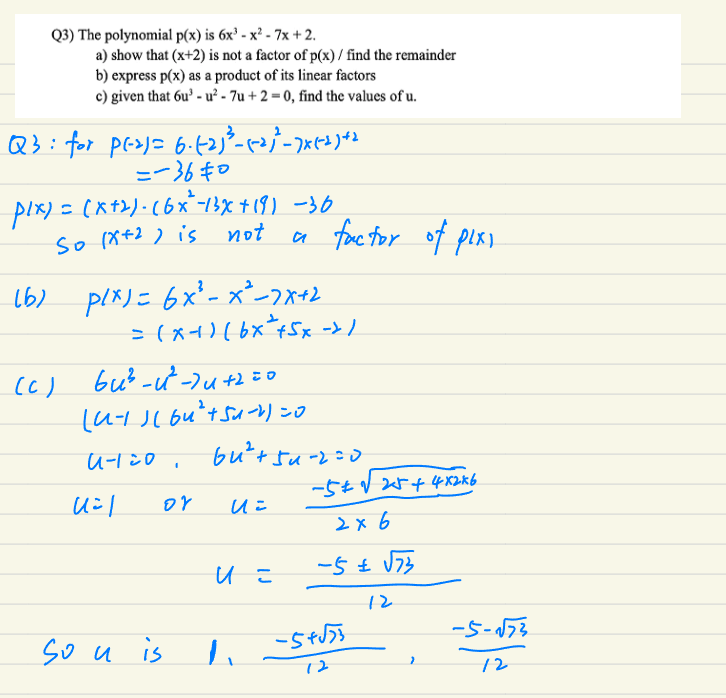 Q3) The polynomial p(x) is 6x³ - x² - 7x + 2.
a) show that (x+2) is not a factor of p(x) / find the remainder
b) express p(x) as a product of its linear factors
c) given that 6u³ - u² - 7u + 2 = 0, find the values of u.
Q3: for p(-2)= 6·(-2)³-(-2)²-7×(-2)+2
=-36≠0
p(x) = (x+2)·(6x²-13x+19) -36
so (x+2) is not a factor of p(x)
(b) p(x)= 6x³-x²-7x+2
= (x-1)(6x²+5x-2)
(c) 6u³-u²-7u+2=0
(u-1)(6u²+5u-2)=0
u-1=0, 6u²+5u-2=0
u=1 or u= (-5±√(25+4×2×6))/(2×6)
u = (-5±√73)/12
So u is 1, (-5+√73)/12, (-5-√73)/12